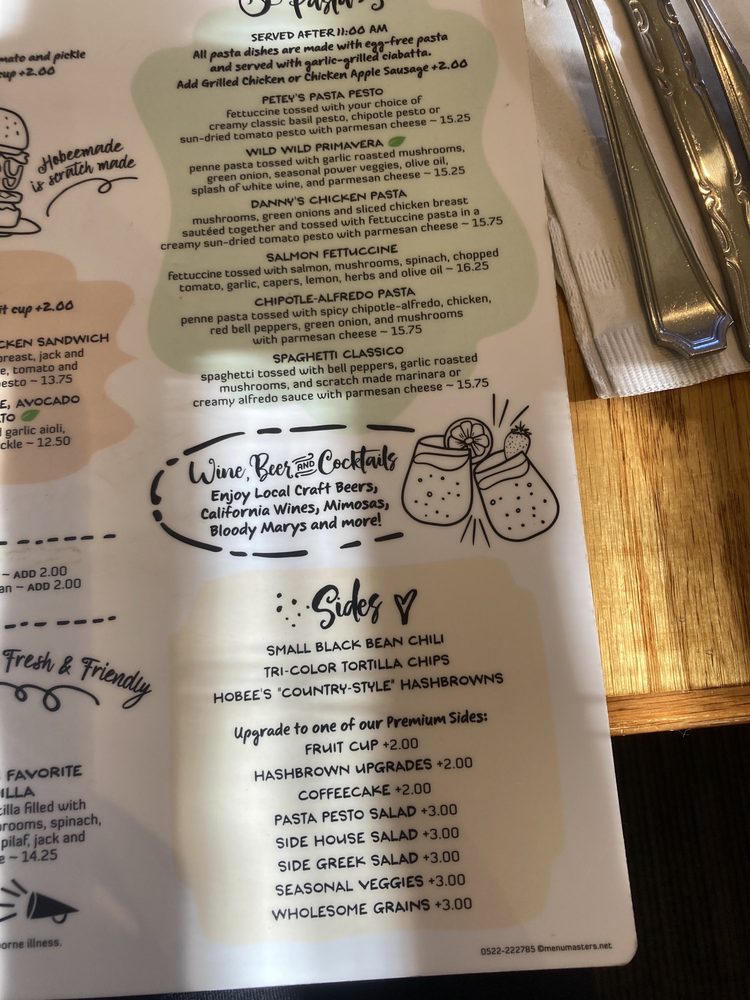 Pastas
SERVED AFTER 11:00 AM
All pasta dishes are made with egg-free pasta
and served with garlic-grilled ciabatta.
Add Grilled Chicken or Chicken Apple Sausage +2.00
PETEY'S PASTA PESTO
fettuccine tossed with your choice of
creamy classic basil pesto, chipotle pesto or
sun-dried tomato pesto with parmesan cheese ~ 15.25
WILD WILD PRIMAVERA
penne pasta tossed with garlic roasted mushrooms,
green onion, seasonal power veggies, olive oil,
splash of white wine, and parmesan cheese ~ 15.25
DANNY'S CHICKEN PASTA
mushrooms, green onions and sliced chicken breast
sautéed together and tossed with fettuccine pasta in a
creamy sun-dried tomato pesto with parmesan cheese ~ 15.75
SALMON FETTUCCINE
fettuccine tossed with salmon, mushrooms, spinach, chopped
tomato, garlic, capers, lemon, herbs and olive oil ~ 16.25
CHIPOTLE-ALFREDO PASTA
penne pasta tossed with spicy chipotle-alfredo, chicken,
red bell peppers, green onion, and mushrooms
with parmesan cheese ~ 15.75
SPAGHETTI CLASSICO
spaghetti tossed with bell peppers, garlic roasted
mushrooms, and scratch made marinara or
creamy alfredo sauce with parmesan cheese ~ 15.75
Wine, Beer AND Cocktails
Enjoy Local Craft Beers,
California Wines, Mimosas,
Bloody Marys and more!
Sides
SMALL BLACK BEAN CHILI
TRI-COLOR TORTILLA CHIPS
HOBEE'S "COUNTRY-STYLE" HASHBROWNS
Upgrade to one of our Premium Sides:
FRUIT CUP +2.00
HASHBROWN UPGRADES +2.00
COFFEECAKE +2.00
PASTA PESTO SALAD +3.00
SIDE HOUSE SALAD +3.00
SIDE GREEK SALAD +3.00
SEASONAL VEGGIES +3.00
WHOLESOME GRAINS +3.00
0522-222785 ©menumasters.net
and pickle
cup +2.00
Hobeemade
is scratch made
cup +2.00
SANDWICH
jack and
tomato and
~ 13.75
AVOCADO
garlic aioli,
~ 12.50
~ ADD 2.00
~ ADD 2.00
Fresh & Friendly
FAVORITE
filled with
spinach,
pilaf, jack and
~ 14.25
illness.